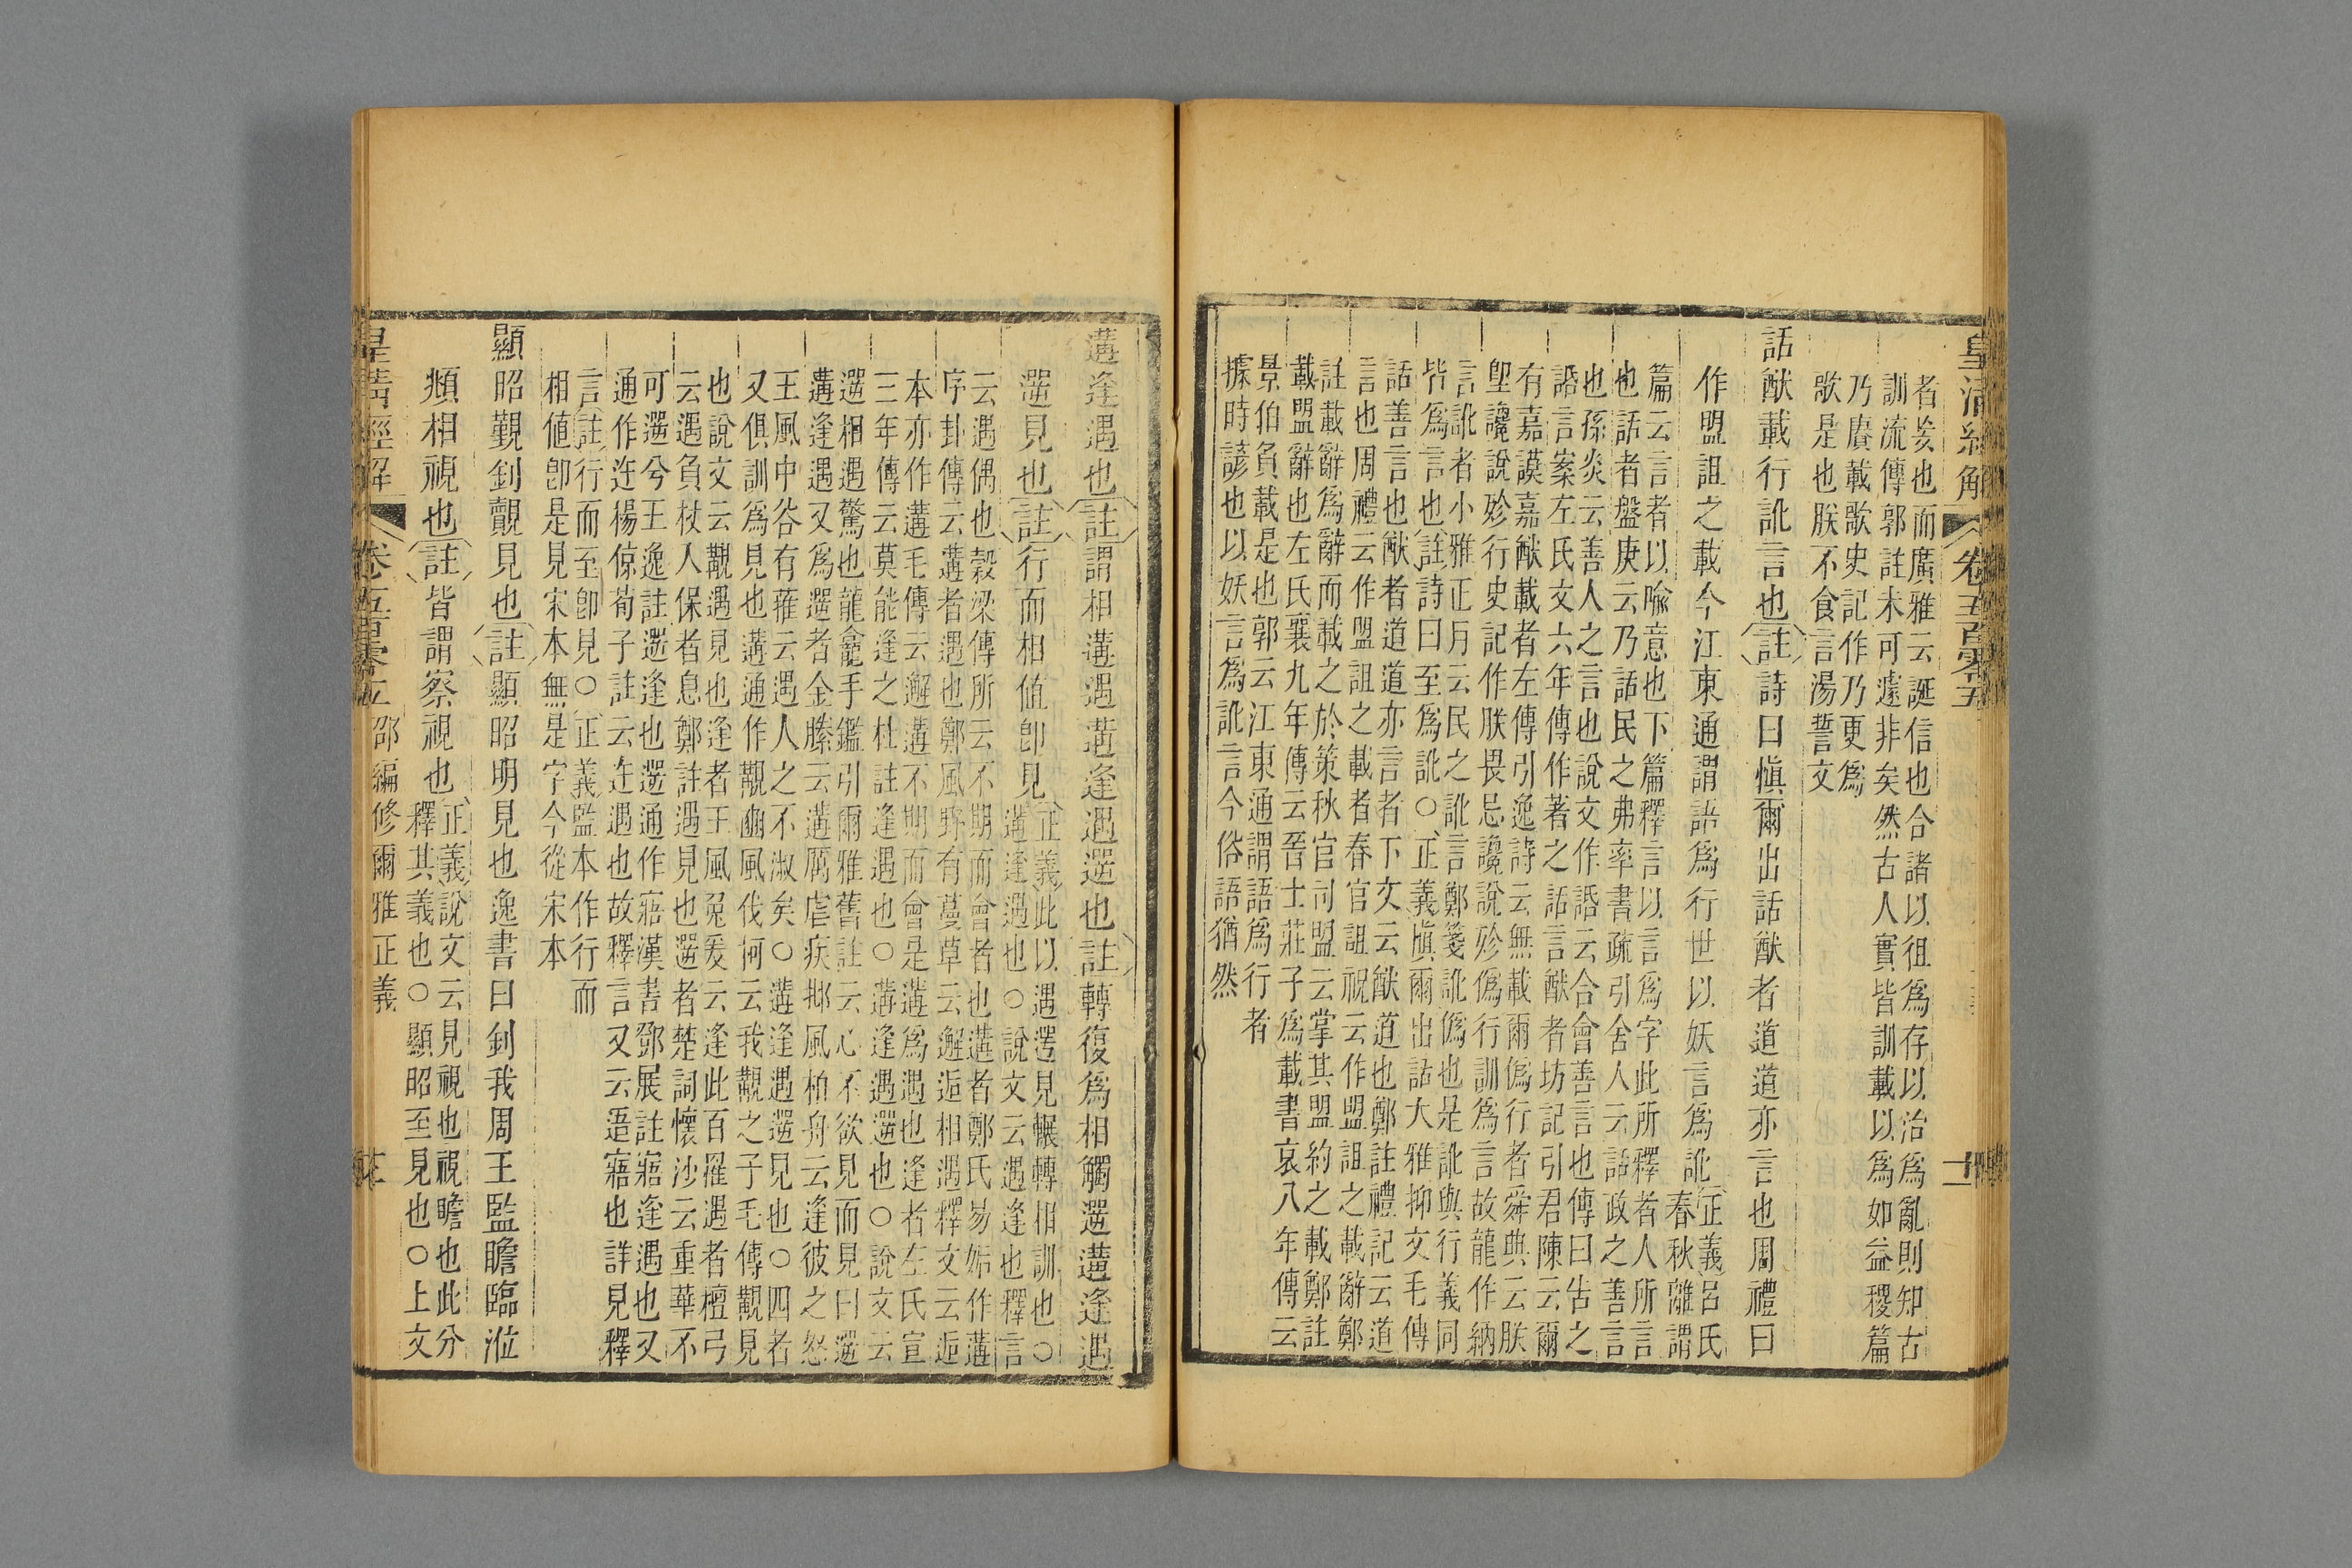 皇清經解
卷五百零五
者矣也而廣雅云誕信也合諸以徂爲存以治爲亂則知古
訓流傳郭註未可遽非矣然古人實皆訓載以爲如益稷篇
乃賡載歌史記作乃更爲
歌是也朕不食言湯誓文
話猷載行訛言也註詩曰愼爾出話猷者道道亦言也周禮曰
作盟詛之載今江東通謂語爲行世以妖言爲訛
正義呂氏
春秋離謂
篇云言者以喩意也下篇釋言以言爲字此所釋者人所言
也話者盤庚云乃話民之弗率書疏引舍人云話政之善言
也孫炎云善人之言也說文作䛡云合會善言也傳曰告之
䛡言案左氏文六年傳作著之話言猷者坊記引君陳云爾
有嘉謨嘉猷載者左傳引逸詩云無載爾僞行者舜典云朕
堲讒說殄行史記作朕畏忌讒說殄僞行訓爲言故龍作納
言訛者小雅正月云民之訛言鄭箋訛僞也是訛與行義同
皆爲言也註詩曰至爲訛○正義愼爾出話大雅抑文毛傳
話善言也猷者道道亦言者下文云猷道也鄭註禮記云道
言也周禮云作盟詛之載者春官詛祝云作盟詛之載辭鄭
註載辭爲辭而載之於策秋官司盟云掌其盟約之載鄭註
載盟辭也左氏襄九年傳云晉士莊子爲載書哀八年傳云
景伯負載是也郭云江東通謂語爲行者
據時諺也以妖言爲訛言今俗語猶然
遘逢遇也註謂相遘遇遘逢遇遻也註轉復爲相觸遻遘逢遇
遻見也註行而相值卽見
正義此以遇遻見輾轉相訓也○
遘逢遇也○說文云遇逢也釋言
云遇偶也穀梁傳所云不期而會者也遘者鄭氏易姤作遘
序卦傳云遘者遇也鄭風野有蔓草云邂逅相遇釋文云逅
本亦作遘毛傳云邂遘不期而會是遘爲遇也逢者左氏宣
三年傳云莫能逢之杜註逢遇也○遘逢遇遻也○說文云
遻相遇驚也龍龕手鑑引爾雅舊註云心不欲見而見曰遻
遘逢遇又爲遻者金縢云遘厲虐疾邶風柏舟云逢彼之怒
王風中谷有蓷云遇人之不淑矣○遘逢遇遻見也○四者
又俱訓爲見也遘通作覯豳風伐柯云我覯之子毛傳覯見
也說文云覯遇見也逢者王風兔爰云逢此百罹遇者檀弓
云遇負杖人保者息鄭註遇見也遻者楚詞懷沙云重華不
可遻兮王逸註遻逢也遻通作寤漢書鄧展註寤逢遇也又
通作迕楊倞荀子註云迕遇也故釋言又云逜寤也詳見釋
言註行而至卽見○正義監本作行而
相値卽是見宋本無是字今從宋本
顯昭覲釗覿見也註顯昭明見也逸書曰釗我周王監瞻臨涖
頫相視也註皆謂察視也
正義說文云見視也視瞻也此分
釋其義也○顯昭至見也○上文
皇清經解
卷五百零五
邵編修爾雅正義